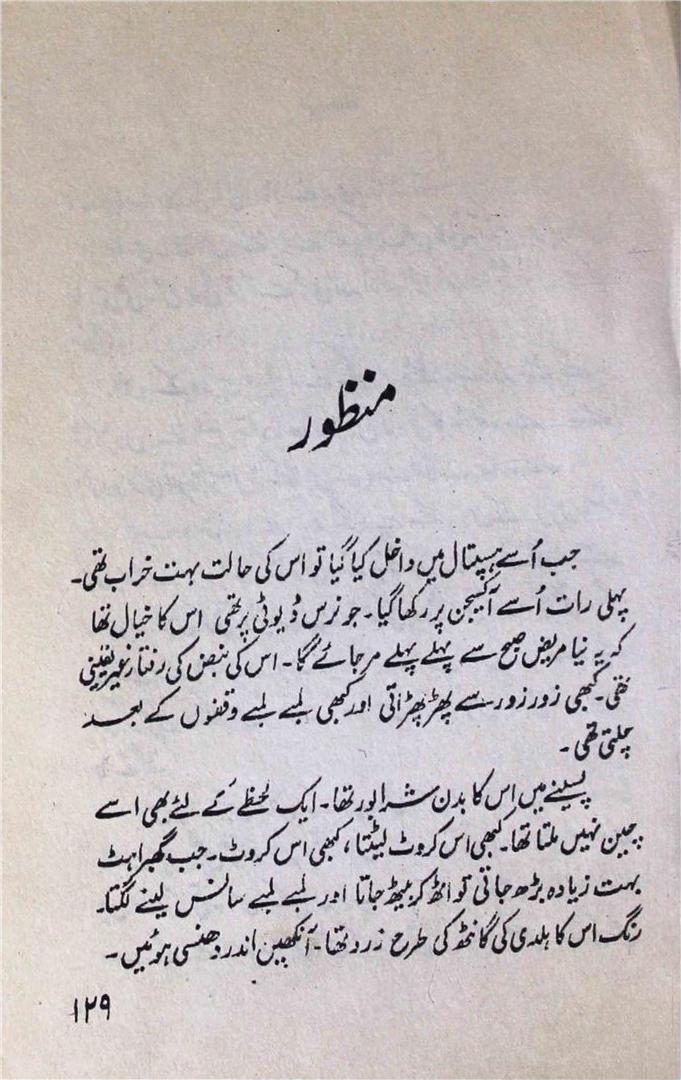 منظور
جب اُسے ہسپتال میں داخل کیا گیا تو اس کی حالت بہت خراب تھی۔
پہلی رات اُسے آکسیجن پر رکھا گیا۔ جو نرس ڈیوٹی پر تھی اس کا خیال تھا
کہ یہ نیا مریض صبح سے پہلے پہلے مر جائے گا۔ اس کی نبض کی رفتار غیر یقینی
تھی۔ کبھی زور زور سے پھڑپھڑاتی اور کبھی لمبے لمبے وقفوں کے بعد
چلتی تھی۔
پسینے میں اس کا بدن شرابور تھا۔ ایک لحظے کے لئے بھی اسے
چین نہیں ملتا تھا۔ کبھی اس کروٹ لیٹتا، کبھی اس کروٹ۔ جب گھبراہٹ
بہت زیادہ بڑھ جاتی تو اٹھ کر بیٹھ جاتا اور لمبے لمبے سانس لینے لگتا۔
رنگ اس کا ہلدی کی گانٹھ کی طرح زرد تھا۔ آنکھیں اندر دھنسی ہوئیں۔
۱۲۹